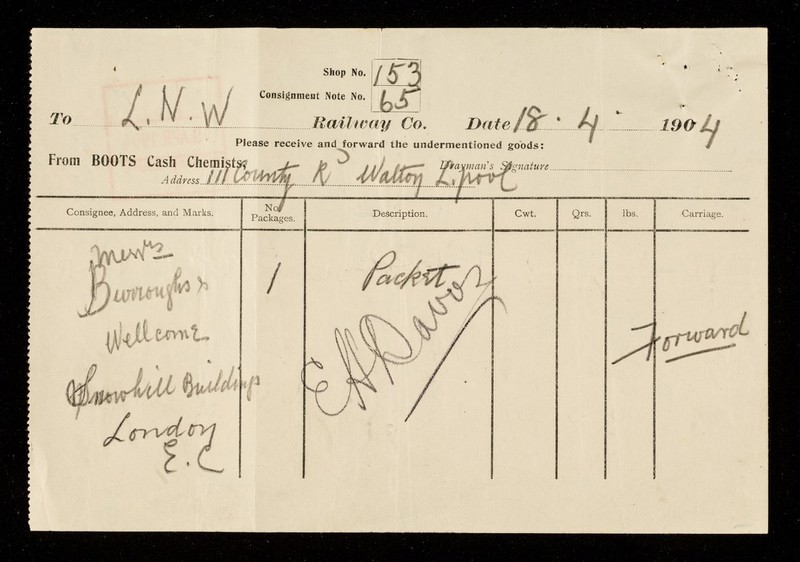 Shop No. 153
Consignment Note No. 65
To L.N.W Railway Co. Date 18 · 4 · 1904
Please receive and forward the undermentioned goods:
From BOOTS Cash Chemists, Drayman's Signature
Address 111 County Rd Walton L.pool
Consignee, Address, and Marks. No. Packages. Description. Cwt. Qrs. lbs. Carriage.
Messrs
Burroughs & 1 Packet
Wellcome Forward
Snowhill Buildings
London
E.C